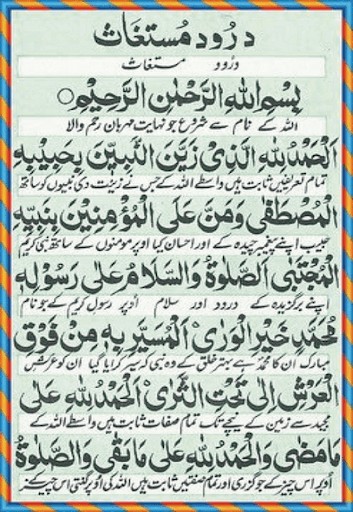 درود مستغاث
درود مستغاث
بِسْمِ اللهِ الرَّحْمٰنِ الرَّحِيْمِ ○
اللہ کے نام سے شروع جو نہایت مہربان رحم والا
اَلْحَمْدُ لِلّٰهِ الَّذِيْ زَيَّنَ النَّبِيِّيْنَ بِحَبِيْبِهِ
تمام تعریفیں ثابت ہیں واسطے اللہ کے جس نے زینت دی نبیوں کو ساتھ
الْمُصْطَفٰى وَمَنَّ عَلَى الْمُؤْمِنِيْنَ بِنَبِيِّهِ
حبیب اپنے پیغمبر چیدہ کے اور احسان کیا اوپر مومنوں کے ساتھ نبی کریم
الْمُجْتَبٰى اَلصَّلٰوةُ وَالسَّلَامُ عَلٰى رَسُوْلِهٖ
اپنے برگزیدہ کے درود اور سلام اوپر رسول کریم کے جو نام
مُحَمَّدٍ خَيْرِ الْوَرٰى اَلْمُسَيَّرِ بِهٖ مِنْ فَوْقِ
مبارک ان کا محمدؐ ہے بہتر خلق کے وہ نبی کہ سیر کرایا گیا ان کو عرش
الْعَرْشِ اِلٰى تَحْتِ الثَّرٰى اَلْحَمْدُ لِلّٰهِ عَلٰى
مجید سے زمین کے نیچے تک تمام صفات ثابت ہیں واسطے اللہ کے
مَا مَضٰى وَالْحَمْدُ لِلّٰهِ عَلٰى مَا بَقٰى وَالصَّلٰوةُ
اوپر اس چیز کے جو گزری اور تمام صفتیں ثابت ہیں اللہ کی اوپر اس چیز کے